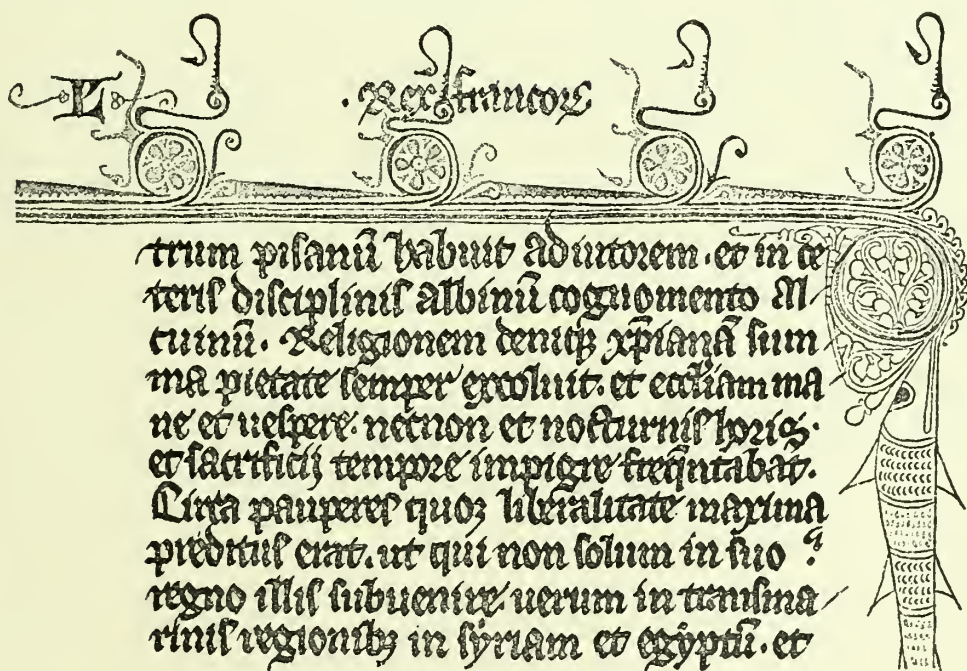 L
· Rex francoꝝ
trum pisanū habuit adiutorem · et in ce
teris disciplinis albinū cognomento Al
cuinū · Religionem deniqꝫ xp̄ianā sum
ma pietate semper excoluit · et eccl̄iam ma
ne et uespere · necnon et nocturnis horis ·
et sacrificij tempore impigre freq̄ntabat̄.
Circa pauperes quoꝫ liberalitate maxima
preditus erat · ut qui non solum in suo
regno illis subuenire uerum in transma
rinis regionibꝫ in sÿriam et egÿptū · et